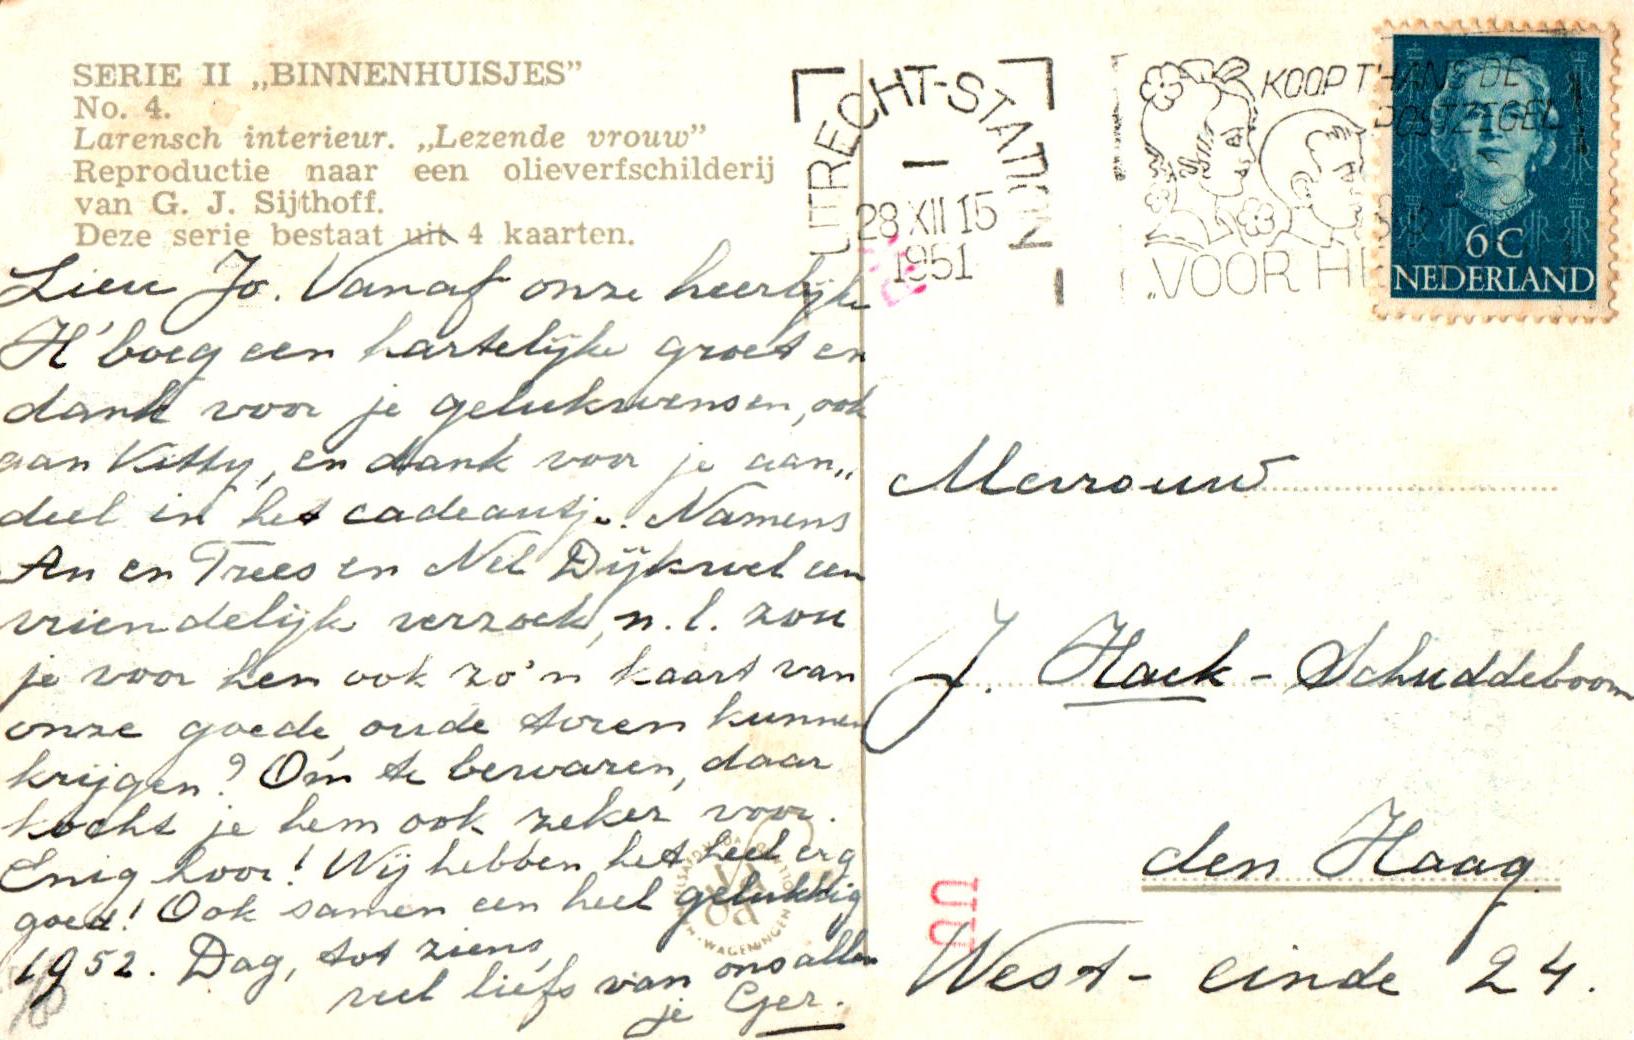 SERIE II „BINNENHUISJES”
No. 4.
Larensch interieur. „Lezende vrouw”
Reproductie naar een olieverfschilderij
van G. J. Sijthoff.
Deze serie bestaat uit 4 kaarten.
UTRECHT-STATION
28 XII 15
1951
KOOP THANS DE
POSTZEGEL
„VOOR HE
6 C
NEDERLAND
Lieve Jo. Vanaf onze heerlijke
H'boeg een hartelijke groet en
dank voor je gelukwensen, ook
aan Kitty, en dank voor je aan„
deel in het cadeautje. Namens
An en Trees en Nel Dijkwel een
vriendelijk verzoek, n.l. zou
je voor hen ook zo'n kaart van
onze goede, oude toren kunnen
krijgen? Om te bewaren, daar
kocht je hem ook zeker voor.
Enig hoor! Wij hebben het heel erg
goed! Ook samen een heel gelukkig
1952. Dag, tot ziens,
veel liefs van ons allen
je Ger.
Mevrouw
J. Hack - Schuddeboom
den Haag
West-einde 24.
WAGENINGEN